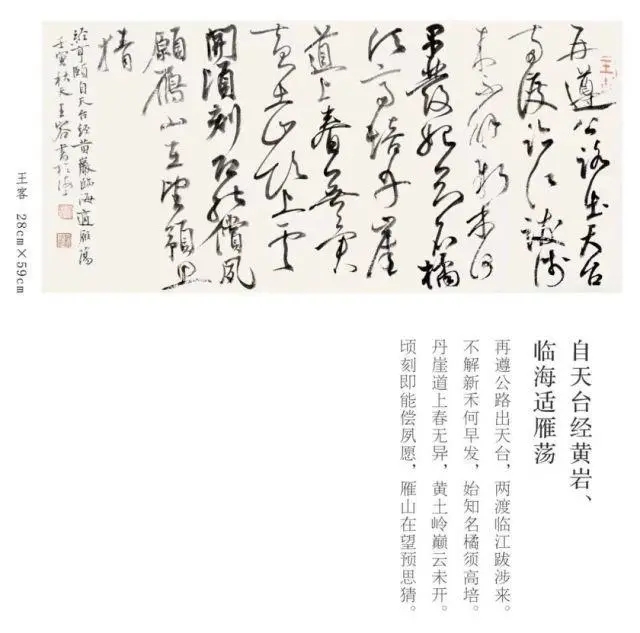 再遵公路出天台
两渡临江跋涉
来不解新禾何
早發始知名橘
须高培丹崖
道上春無異
黄土岭
開頃刻即能償夙
願雁山在望預思
猜
自天台经黄巖臨海適雁蕩
壬寅秋 王客書於
王客 28cm×59cm
自天台经黄岩、
临海适雁荡
再遵公路出天台，两渡临江跋涉来。
不解新禾何早发，始知名橘须高培。
丹崖道上春无异，黄土岭巅云未开。
顷刻即能偿夙愿，雁山在望预思猜。